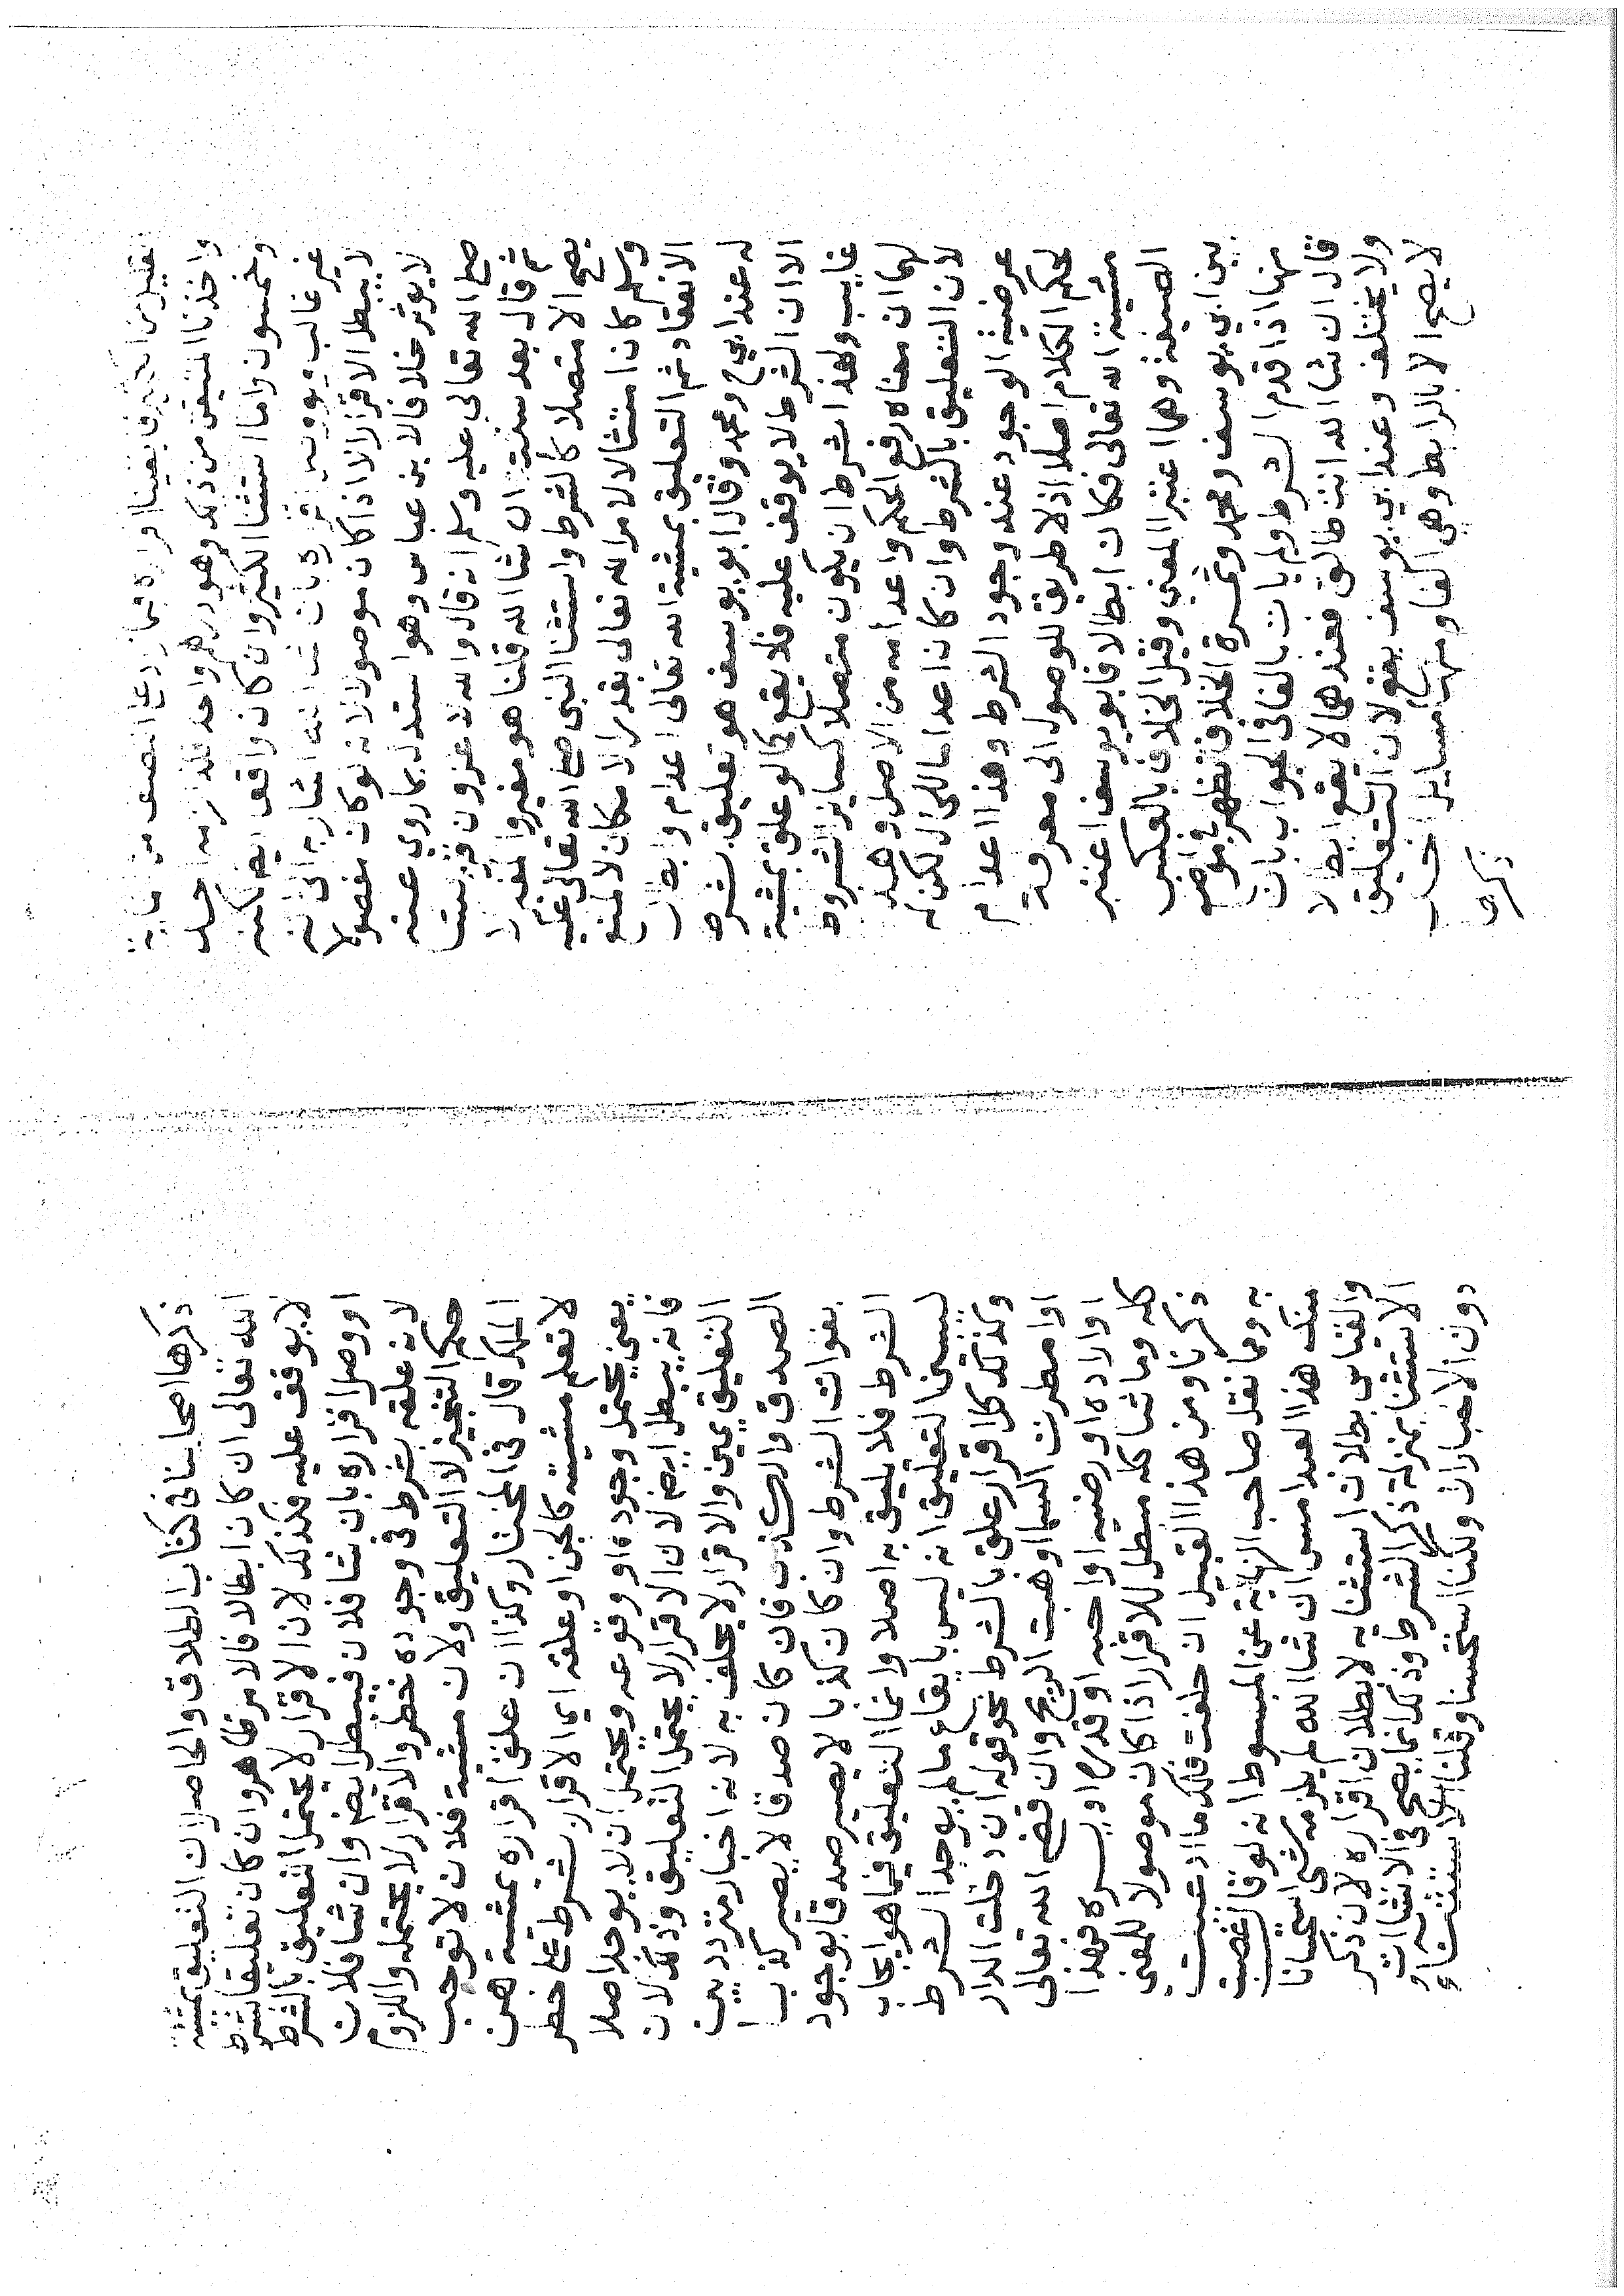 تقليل من الكثير فابقينا اقراره فيما زاد على النصف من مائة
واخذنا المتيقن من ذلك وهو درهم واحد فلذا لزمه احد
وخمسون واما استثنا الكثير وان كان واقعا ايضا لكنه
غير غالب اشار به الى انه
لا يبطل الاقرار الا اذا كان موصولا لانه لو كان مفصولا
لا يوثر خلافا لابن عباس وهو استدل بما روي عنه
صلى الله تعالى عليه وسلم انه قال والله لاغزون قريشا
ثم قال بعد سنة ان شا الله قلنا هو مغير والمغير لا
يصح الا متصلا كالشرط واستثنا النبي صلى الله تعالى عليه
وسلم كان امتثالا لامر الله تعالى بقدر الامكان لا لمنع
الانعقاد ثم التعليق بمشية الله تعالى اعدام وابطال
له عند ابي ح ومحمد وقال ابو يوسف هو تعليق بشرط
الا ان الشرط لا يوقف عليه فلا يقع كما لو علق بمشية
غايب ولهذا شرط ان يكون متصلا كساير الشروط
لهما ان معناه رفع الحكم واعدامه من الاصل وهذا
لان التعليق بالشرط وان كان اعداما للحال لكن له
عرضية الوجود عند وجود الشرط وهذا اعدام
لحكم الكلام اصلا اذ لا طريق للوصول الى معرفة
مشية الله تعالى فكان ابطالا فابو يوسف اعتبر
الصيغة وهما اعتبرا المعنى وقيل الخلاف بالعكس
بين ابي يوسف ومحمد وثمرة الخلاف تظهر في مواضع
منها اذا قدم الشرط ولم يات بالفا في الجواب بان
قال ان شا الله انت طالق فعندهما لا يقع ابطالا
ولا يختلف وعند ابي يوسف يقع لان التعليق
لا يصح الا بالرابط وهي الفا ومنها مسايل اخر
ذكرها
ذكرها اصحابنا في كتاب الطلاق والحاصل ان التعليق بمشية
الله تعالى ان كان ابطالا فالامر ظاهر وان كان تعليقا بشرط
لا يوقف عليه فكذلك لان الاقرار لا يحتمل التعليق بالشرط
او وصل اقراره بان شا فلان فيبطل ايضا وان شا فلان
لانه علقه بشرط في وجوده خطر والاقرار لا يحتمله واللزوم
حكم التنجيز لا التعليق ولان مشية فلان لا توجب
الملك قال في المختار وكذا ان علق اقراره بمشية من
لا تعلم مشيته كالجن او علقه اي الاقرار بشرط على خطر
يعني يحتمل وجوده او وقوعه ويحتمل ان لا يوجد اصلا
فانه يبطل ايضا لان الاقرار لا يحتمل التعليق وذلك لان
التعليق يمين والاقرار لا يحلف به لانه اخبار متردد بين
الصدق والكذب فان كان صدقا لا يصير كذبا
بفوات الشرط وان كان كذبا لا يصير صدقا بوجود
الشرط فلا يليق به اصلا وانما التعليق فيما هو ايجاب
ليتبين بالتعليق انه ليس بايقاع ما لم يوجد الشرط
وكذلك كل اقرار علق بالشرط نحو قوله ان دخلت الدار
او امطرت السما او هبت الريح وان قضى الله تعالى
او اراده او رضيه او احبه او قدره او يسره فهذا
كله وما شاكله مبطل للاقرار اذا كان موصولا للمعنى
ذكرنا ومن هذا القبيل ان حلفت فلك ما ادعيت
به ومما نقل صاحب النهاية عن المبسوط انه لو قال غصبت
منك هذا العبد امس ان شا الله لم يلزمه شي استحسانا
والقياس بطلان استثنايه لا بطلان اقراره لان ذكر
الاستثنا بمنزلة ذكر الشرط وذلك انما يصح في الانشاات
دون الاخبارات ولكنا استحسنا وقلنا الاستثناء